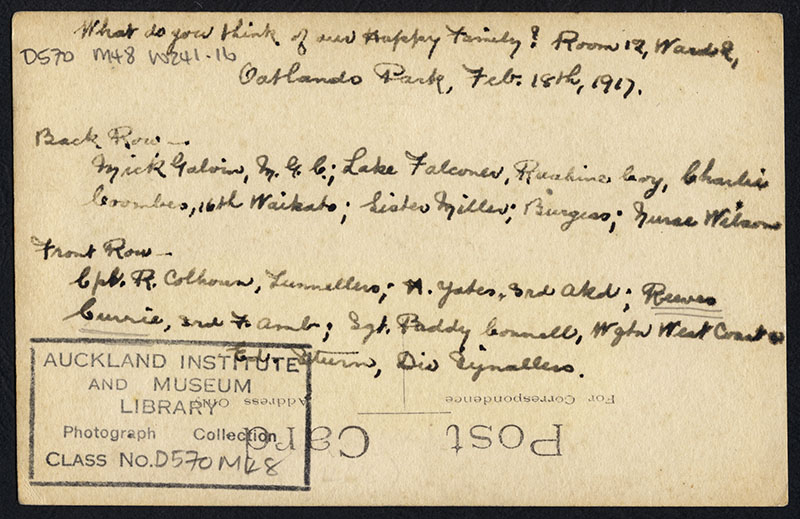 What do you think of our Happy Family? Room 12, Ward 2,
D570 M48 W241.16
Oatlands Park, Feb. 18th, 1917.
Back Row —
Mick Galvin, M.G.C; Lake Falconer, Ruahine Coy, Charlie
Coombes, 16th Waikato; Sister Miller; Burgess; Nurse Wilson
Front Row —
Cpl. R. Colhoun, Tunnellers; A. Yates, 3rd Akd; Reeves
Currie, 3rd F. Amb; Sgt. Paddy Connell, Wgtn West Coast
Ed. Sturn, Div Signallers.
AUCKLAND INSTITUTE
AND MUSEUM
LIBRARY
Photograph Collection
CLASS No. D570 M48
Post Card
For Correspondence
Address Only